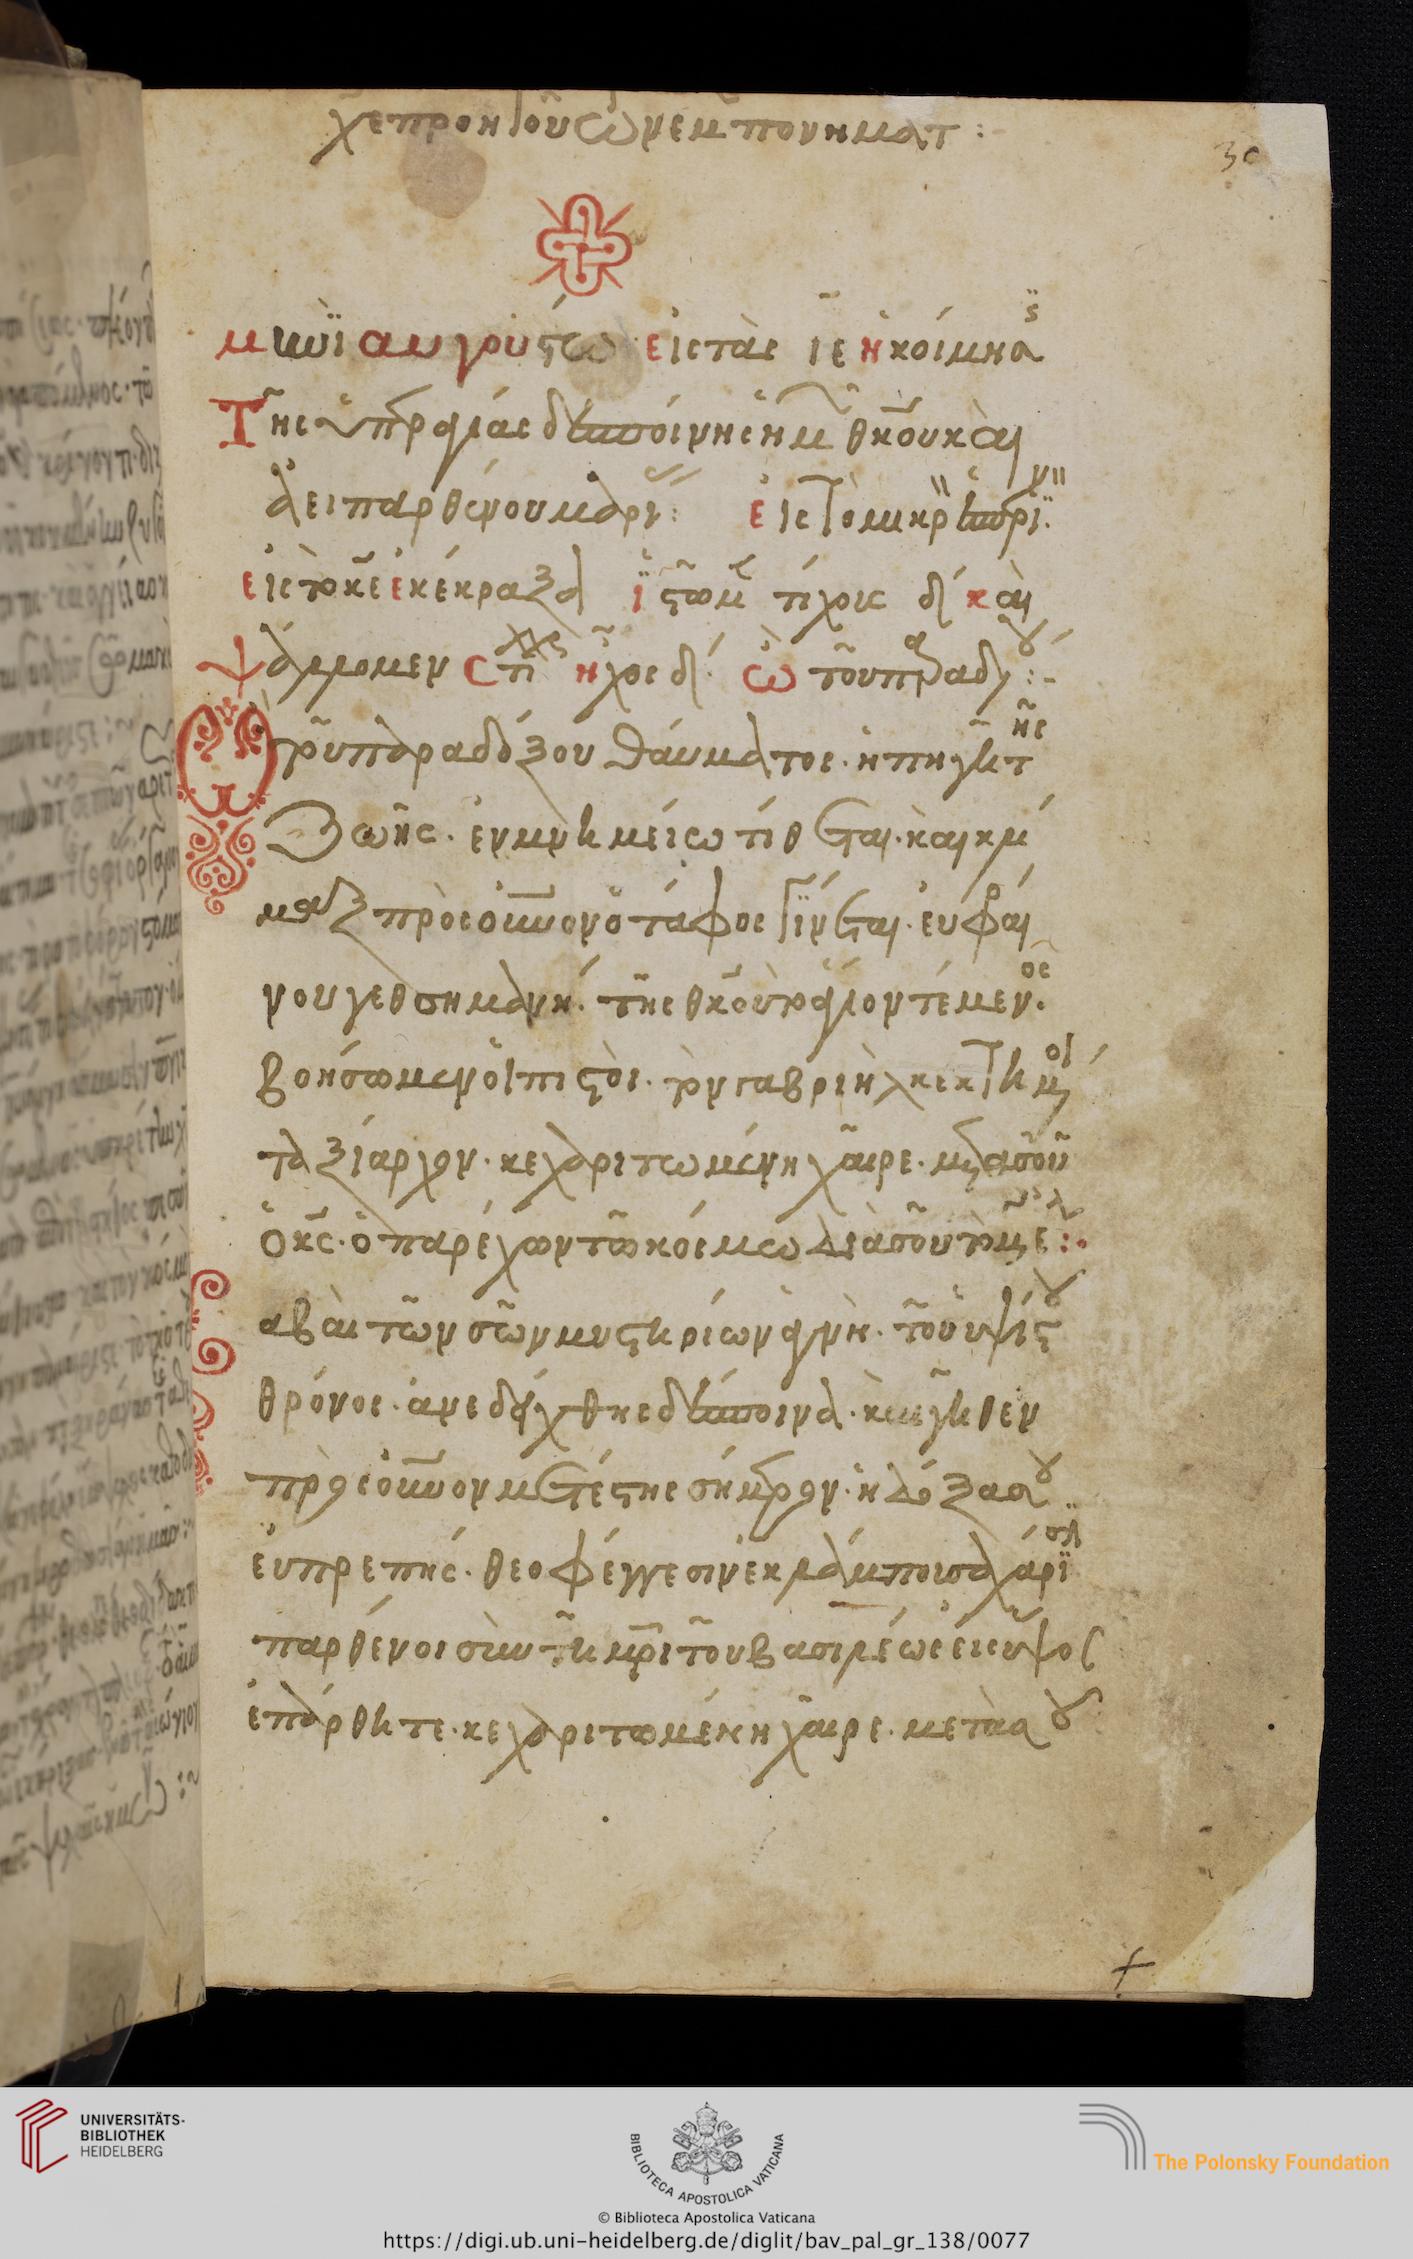 χε προηγοῦ ὧν ἐμπονηματ :
30
μηνὶ αυγούστω εἰς τὰς ιε ἡ κοίμησ
Τῆς ὑπεραγίας δεσποίνης ἡμ θκου καὶ
ἀειπαρθένου μαρι: εἰς τὸ μικρ ἑσπερι
εἰς τὸ κε ἐκέκραξα ἱστῶμ στίχους δ καὶ
ψάλλομεν στιχ ἦχος δ. Ὢ τοῦ παραδ :-
τοῦ παραδόξου θάυματος. ἡ πηγὴ τῆς
ζωῆς. ἐν μνημείω τίθεται. καὶ κλί
μαξ πρὸς οὐνον ὁ τάφος γίνεται. ευφραί
νου γεθσημανή. τῆς θκου τὸ ἅγιον τέμενος.
βοήσωμεν ὁι πιστὸι. τὸν γαβριὴλ κεκτημένοι
ταξίαρχον. κεχαριτωμένη χαῖρε. μετα σοῦ
ὁ κς. ὁ παρέχων τῶ κόσμω διὰ σοῦ τὸ μέγα ἔλε :·
αβαὶ τῶν σῶν μυστηρίων ἁγνὴ. τοῦ ὑψίστου
θρόνος. ἀνεδείχθης δέσποινα. καὶ γῆθεν
πρὸς οὐνον μετέστης σήμερον. ἡ δόξα σου
εὐπρεπής. θεοφέγγεσιν ἐκλάμπουσα χάρισι
παρθένοι σὺν τῆ μρὶ τοῦ βασιλέως εἰς ὕψος
ἐπάρθητε. κεχαριτωμένη χαῖρε. μετὰ σου
UNIVERSITÄTS-
BIBLIOTHEK
HEIDELBERG
BIBLIOTECA APOSTOLICA VATICANA
The Polonsky Foundation
© Biblioteca Apostolica Vaticana
https://digi.ub.uni-heidelberg.de/diglit/bav_pal_gr_138/0077